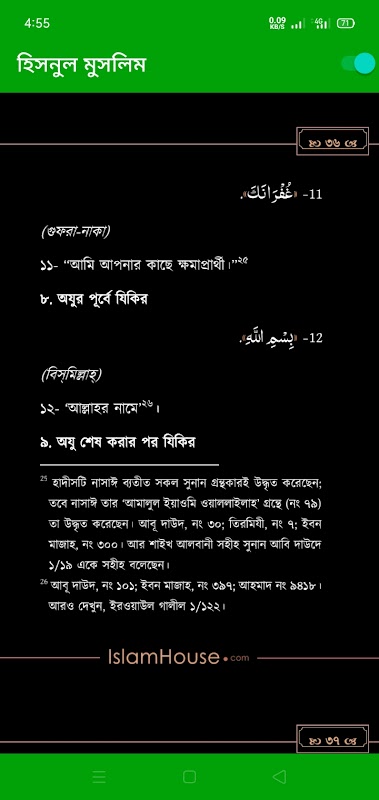 4:55
0.09 KB/S 4G 71
হিসনুল মুসলিম
৩৬
11- «غُفْرَانَكَ».
(গুফরা-নাকা)
১১- “আমি আপনার কাছে ক্ষমাপ্রার্থী।”২৫
৮. অযুর পূর্বে যিকির
12- «بِسْمِ اللَّهِ».
(বিস্‌মিল্লাহ্‌)
১২- ‘আল্লাহর নামে’২৬।
৯. অযু শেষ করার পর যিকির
25 হাদীসটি নাসাঈ ব্যতীত সকল সুনান গ্রন্থকারই উদ্ধৃত করেছেন;
তবে নাসাঈ তার ‘আমালুল ইয়াওমি ওয়াললাইলাহ’ গ্রন্থে (নং ৭৯)
তা উদ্ধৃত করেছেন। আবূ দাউদ, নং ৩০; তিরমিযী, নং ৭; ইবন
মাজাহ, নং ৩০০। আর শাইখ আলবানী সহীহ সুনান আবি দাউদে
১/১৯ একে সহীহ বলেছেন।
26 আবূ দাউদ, নং ১০১; ইবন মাজাহ, নং ৩৯৭; আহমাদ নং ৯৪১৮।
আরও দেখুন, ইরওয়াউল গালীল ১/১২২।
IslamHouse.com
৩৭